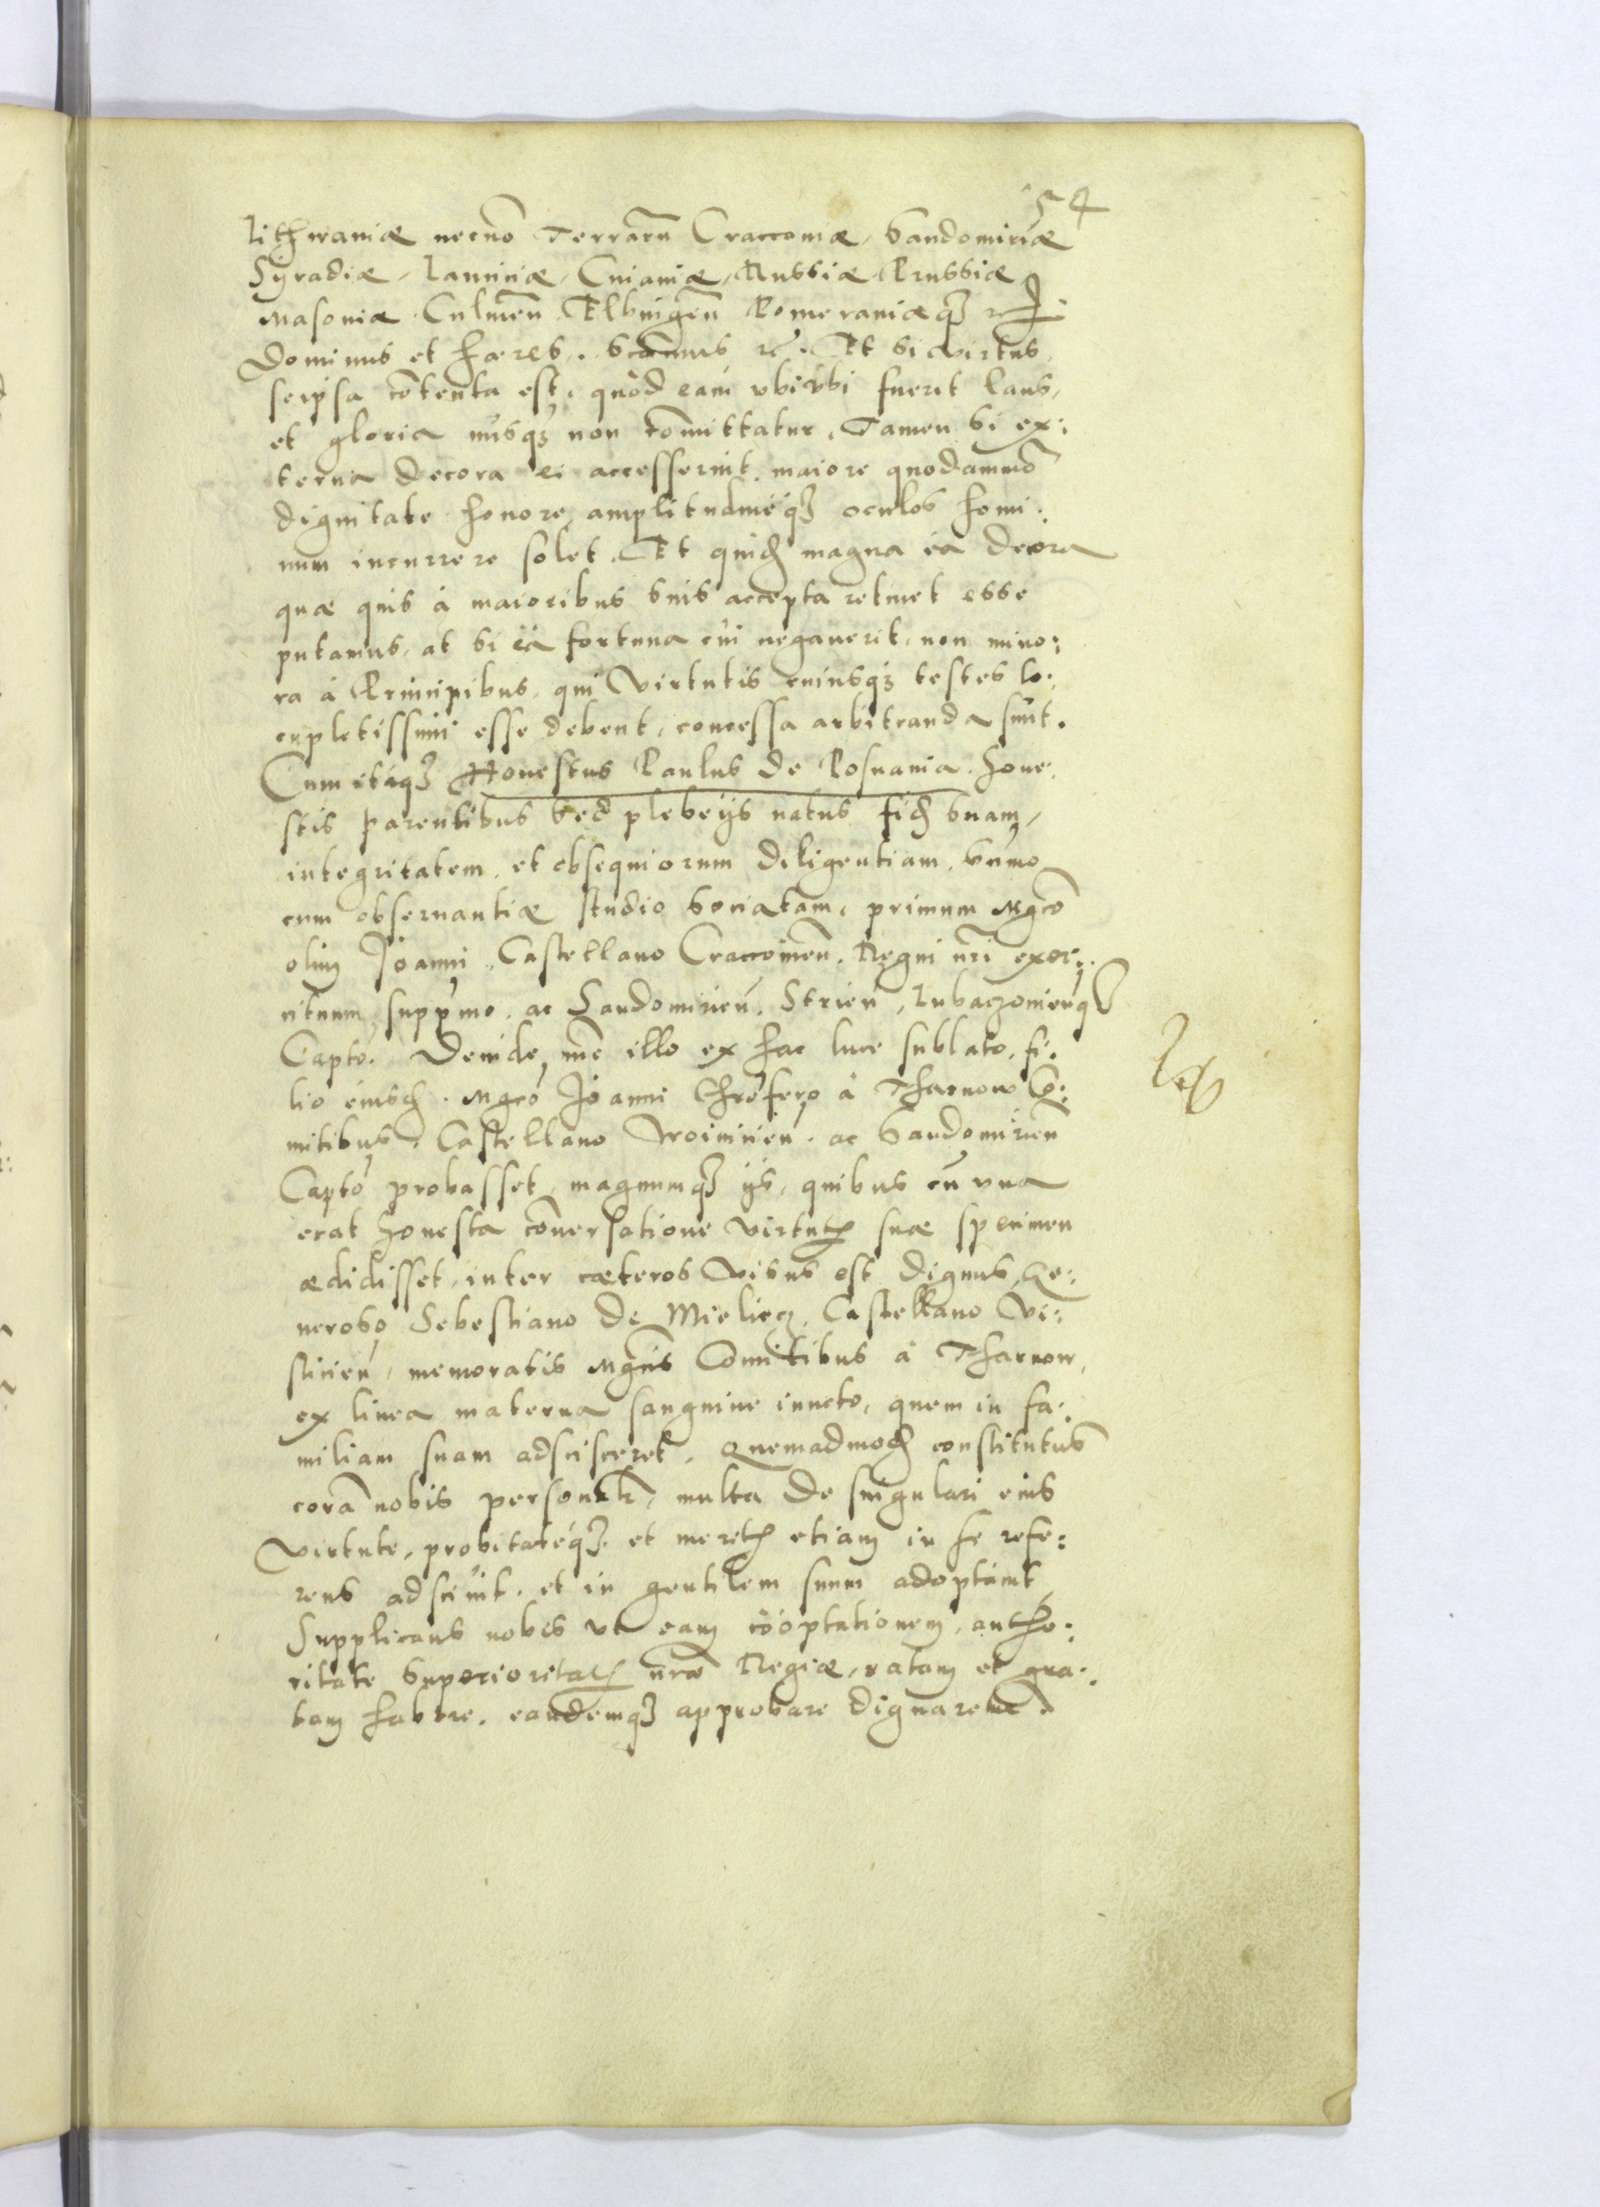 54
Lithwaniæ necnõ Terrarũ Craccoviæ, Sandomiriæ
Syradiæ, Lanciciæ, Cuiaviæ, Russiæ, Prussiæ
Masoviæ Culmeñ Elbingeñ Pomeraniæq3
Dominus et hæres. Et si virtus
seipsa cõtenta est, quòd eam ubiubi fuerit laus,
et gloria nusq3 non comittatur, Tamen si ex:
terna decora ei accesserint, maiore quodammõ
dignitate honore, amplitudineq3 oculos homi:
num incurrere solet. Et quid magna ea decora
quæ quis à maioribus suis accepta retinet esse
putamus, at si ea fortuna cui negaverit, non mino:
ra à Principibus, qui virtutis cuiusq3 testes lo:
cupletissimi esse debent, concessa arbitranda sunt.
Cum itaq3 Honestus Paulus de Posnania hone:
stis parentibus sed plebeijs natus fid suam,
integritatem, et obsequiorum diligentiam, sũmo
cum observantiæ studio sociatam, primum Mgco
olim Joanni, Castellano Craccovieñ, Regni nri exer:
cituum supmo, ac Sandomirieñ, Strieñ, Lubaczovieñq3
Captõ. Deinde illo ex hac luce sublato, fi:
lio eiusd. Mgco Joanni Chrõfero à Tharnow Co:
mitibus, Castellano Woiniceñ, ac Sandomirieñ
Captõ probasset, magnumq3 ijs, quibus cũ una
erat honesta cõversatione virtutis suæ specimen
ædidisset, inter cæteros visus est dignus, Ge:
neroso Sebestiano de Mieliecz, Castellano Vi:
slicieñ, memoratis Mgcis Comitibus à Tharnow,
ex linea materna sanguine iuncto, quem in fa:
miliam suam adscisceret, Quemadmod constitutus
corã nobis personalr, multa de singulari eius
virtute, probitateq3, et meritis etiam in se refe:
rens adscivit, et in gentilem suum adoptavit,
Supplicans nobis ut eam cooptationem, autho:
ritate Superioritatis nræ Regiæ, ratam et gra:
tam habere, eandemq3 approbare dignaremur.